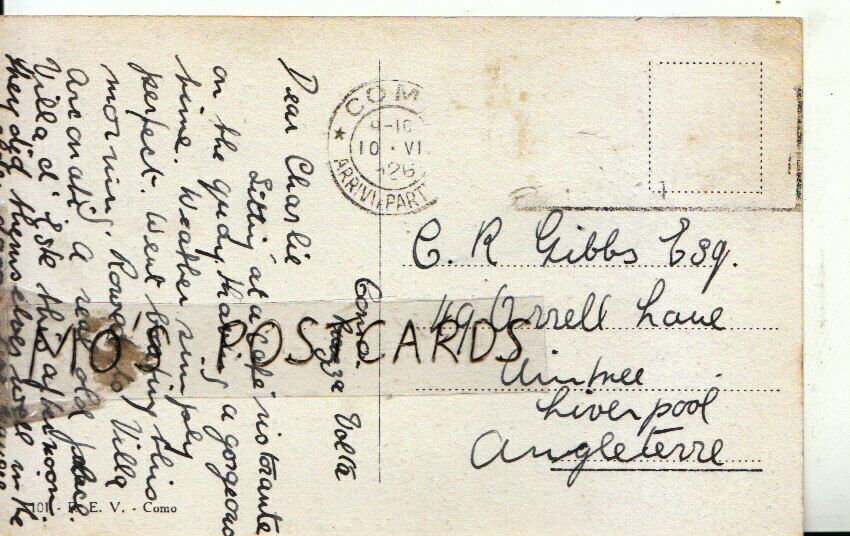 COM
9-10
10 · VI.
26
ARRIVI. PART
Como.
Piazza Volta
Dear Charlie
Sitting at a cafe ristorante
on the quay thats a gorgeous
time. Weather simply
perfect. Went boating this
morning. Rowed to Villa
Arconati. A real old place.
Villa d'Este this afternoon.
they did themselves well in the
C. R Gibbs Esq.
49 Orrell Lane
Aintree
Liverpool
Angleterre
MO'S POSTCARDS
E. V. - Como